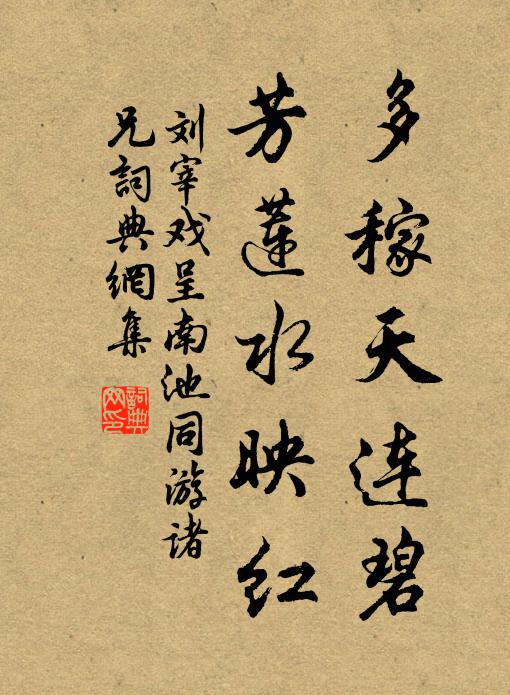 多稼天连碧
芳蓮水映红
刘宰戏呈南池同游诸
兄詞典網集
詞典
网印